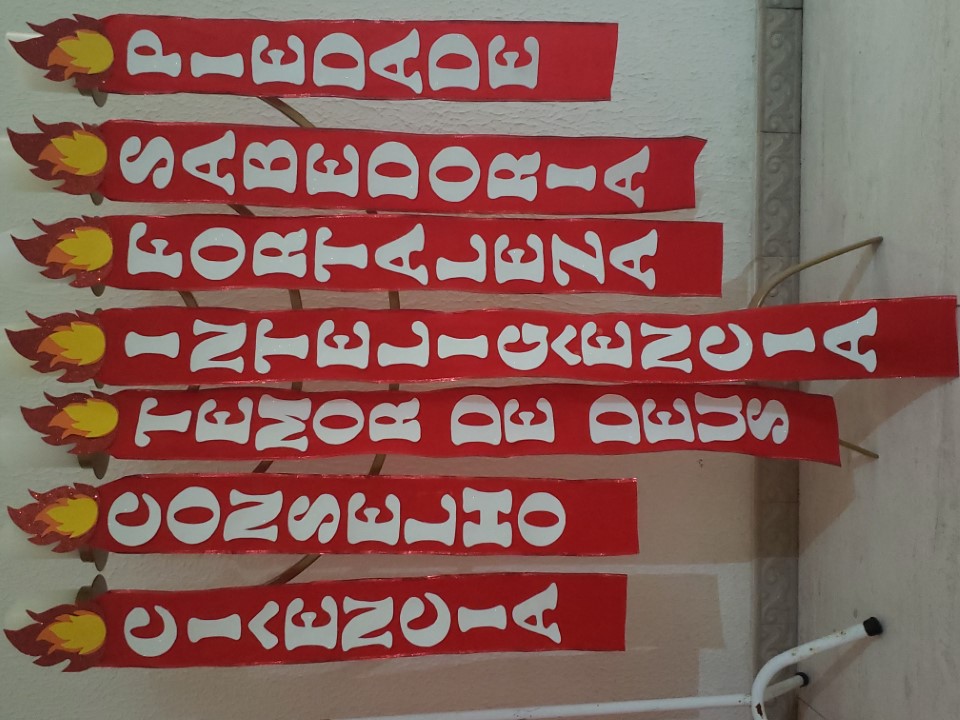 PIEDADE
SABEDORIA
FORTALEZA
INTELIGÊNCIA
TEMOR DE DEUS
CONSELHO
CIÊNCIA